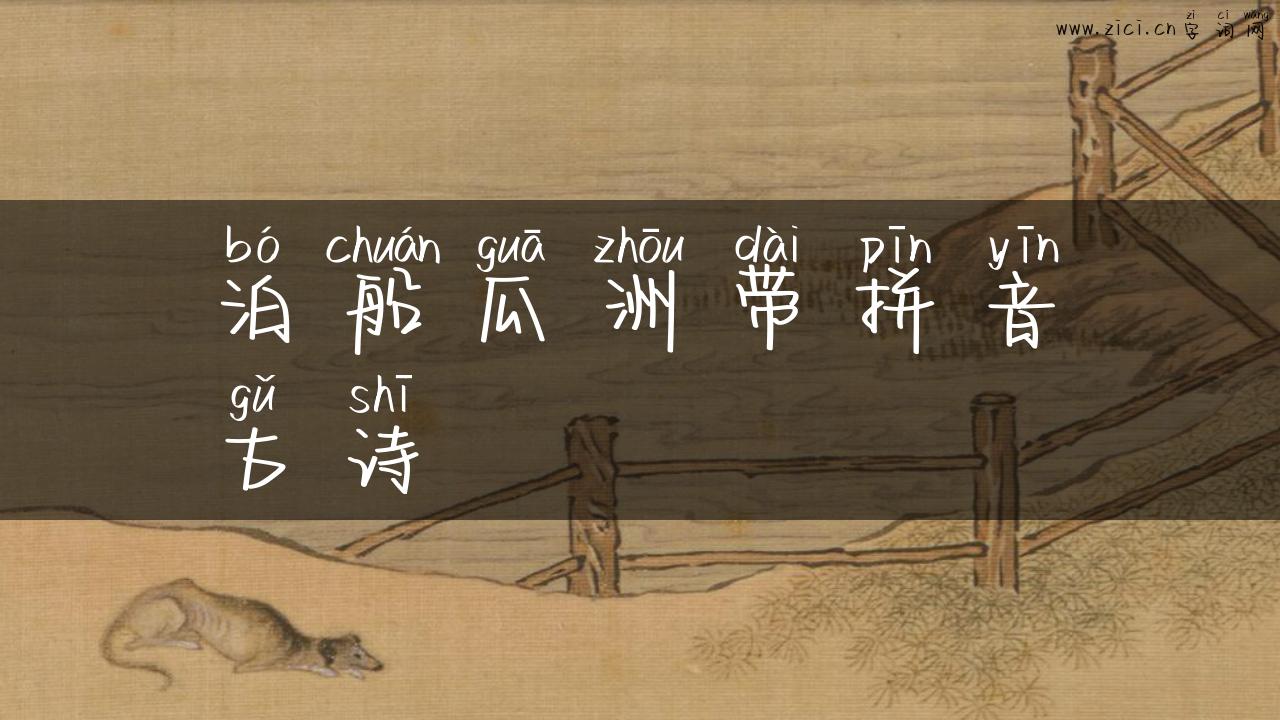 zì cí wǎng
www.zici.cn 字词网
bó chuán guā zhōu dài pīn yīn
泊船瓜洲带拼音
gǔ shī
古诗